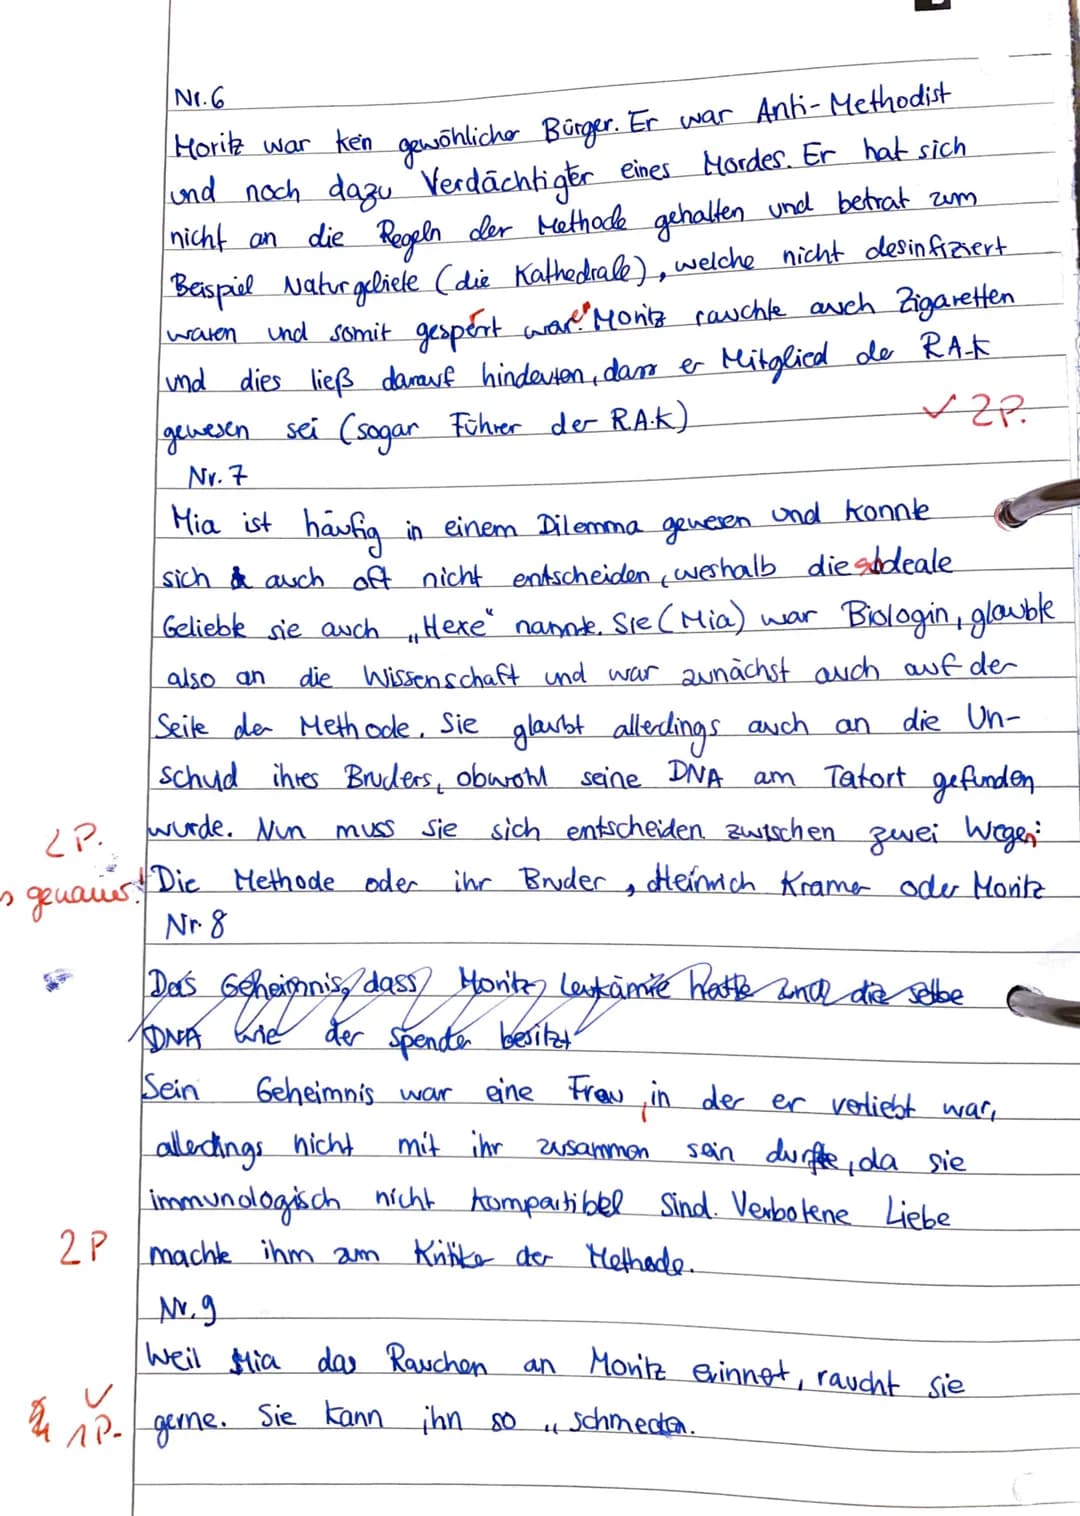 Nr. 6
Moritz war kein gewöhlicher Bürger. Er war Anti-Methodist
und noch dazu Verdächtigter eines Mordes. Er hat sich
nicht an die Regeln der Methode gehalten und betrat zum
Beispiel Naturgebiete (die Kathedrale), welche nicht desinfiziert
waren und somit gesperrt war. Moritz rauchte auch Zigaretten
und dies ließ darauf hindeuten, dass er Mitglied de RAK
gewesen sei (sogar Führer der RAK)
✓ 2P.
Nr. 7
Mia ist häufig in einem Dilemma gewesen und konnte
sich auch oft nicht entscheiden, weshalb die ideale
Geliebte sie auch „Hexe" nannte. Sie (Mia) war Biologin, glaubte
also an die Wissenschaft und war zunächst auch auf der
Seite der Methode. Sie glaubt allerdings auch an die Un-
schud ihres Bruders, obwohl seine DNA am Tatort gefunden
wurde. Nun muss sie sich entscheiden zwischen zwei Wegen:
2P.
genauer! Die Methode oder ihr Bruder, Heinrich Kramer oder Moritz
Nr. 8
Das Geheimnis, dass Moritz Leukämie hatte und die selbe
DNA wie der Spender besitzt
Sein Geheimnis war eine Frau, in der er verliebt war,
allerdings nicht mit ihr zusammen sein durfte, da sie
immunologisch nicht kompartibel sind. Verbotene Liebe
2P machte ihm am Kritiker der Methode.
Nr. 9
Weil Mia das Rauchen an Moritz erinnert, raucht sie
✓ 1P. gerne. Sie kann ihn so „schmecken.